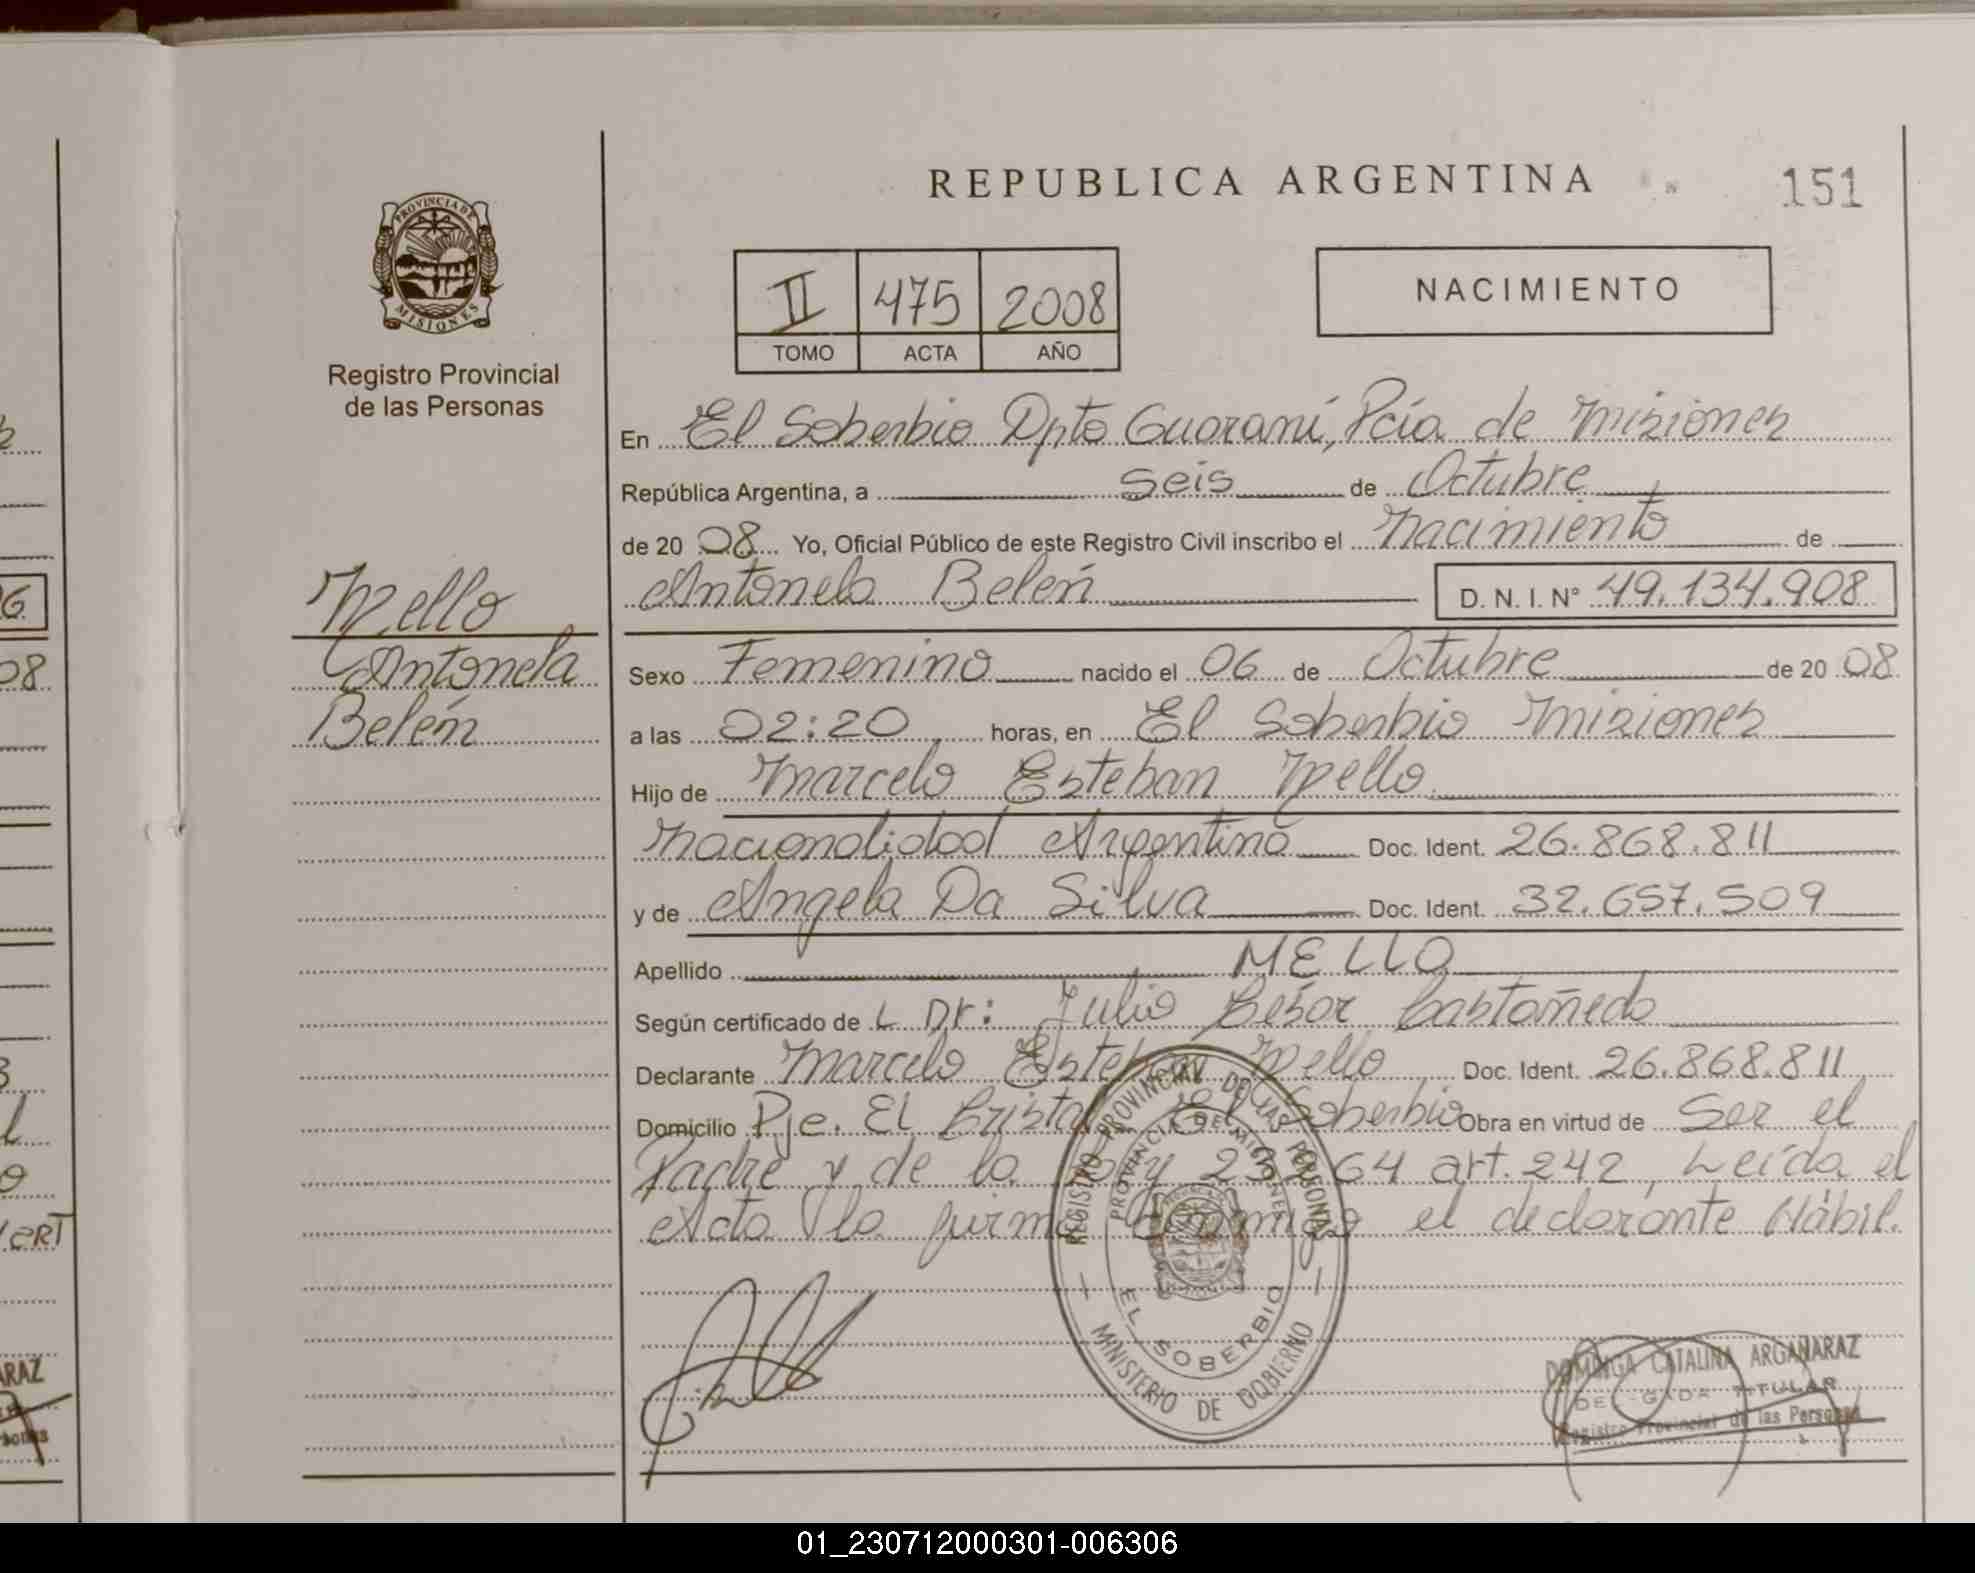 REPUBLICA ARGENTINA
151
PROVINCIA DE
MISIONES
Registro Provincial
de las Personas
II 475 2008
TOMO ACTA AÑO
NACIMIENTO
En El Soberbio Dpto Guaraní, Pcia de Misiones
República Argentina, a Seis de Octubre
de 20 08 Yo, Oficial Público de este Registro Civil inscribo el Nacimiento de
Antonela Belén D. N. I. N° 49.134.908
Mello
Antonela
Belén
Sexo Femenino nacido el 06 de Octubre de 20 08
a las 02:20 horas, en El Soberbio Misiones
Hijo de Marcelo Esteban Mello
Nacionalidad Argentina Doc. Ident. 26.868.811
y de Angela Da Silva Doc. Ident. 32.657.509
Apellido MELLO
Según certificado de L Dr: Julio Cesar Castañedo
Declarante Marcelo Esteban Mello Doc. Ident. 26.868.811
Domicilio Pje. El Cristal El Soberbio Obra en virtud de Ser el
Padre y de la Ley 64 art. 242, Leída el
Acta la firma Conmigo el declarante Hábil.
REGISTRO PROVINCIAL DE LAS PERSONAS
PROVINCIA DE MISIONES
EL SOBERBIO
MINISTERIO DE GOBIERNO
DOMINGA CATALINA ARGAÑARAZ
DELEGADA TITULAR
Registro Provincial de las Personas
01_230712000301-006306